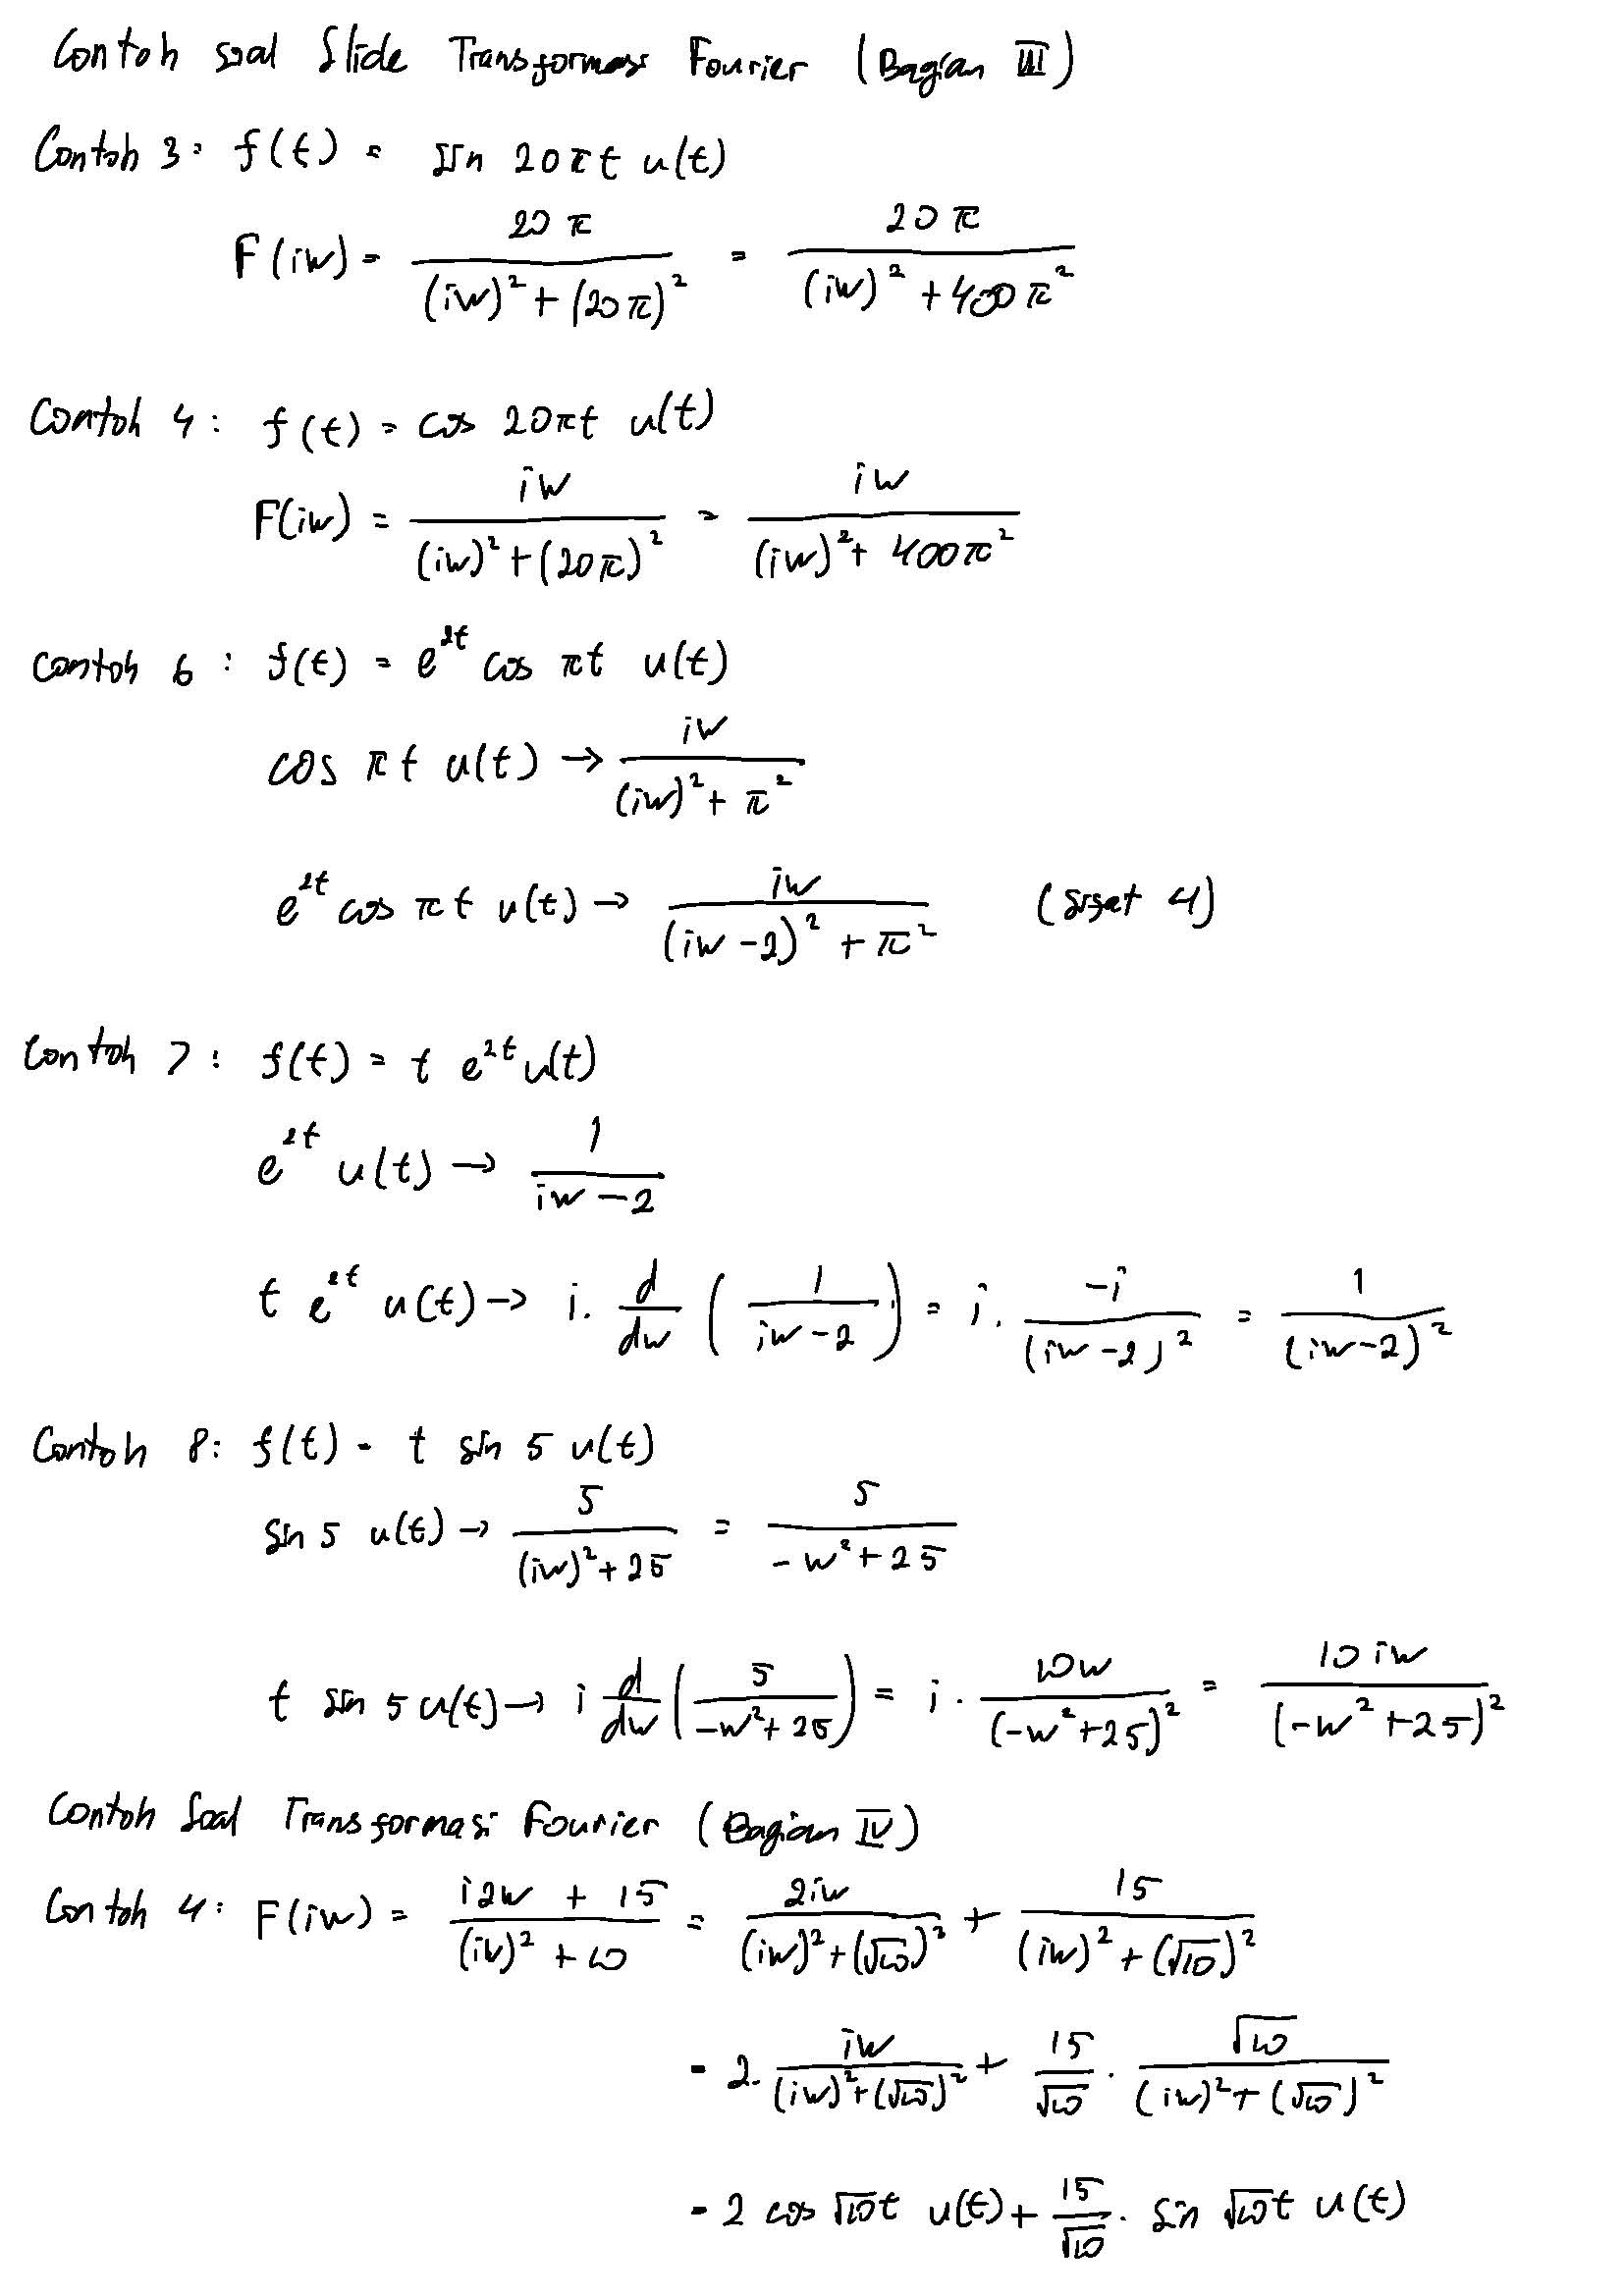 Contoh soal Slide Transformasi Fourier (Bagian III)
Contoh 3: f(t) = sin 20πt u(t)
F(iw) = 20π / ((iw)² + (20π)²) = 20π / ((iw)² + 400π²)
Contoh 4: f(t) = cos 20πt u(t)
F(iw) = iw / ((iw)² + (20π)²) = iw / ((iw)² + 400π²)
Contoh 6: f(t) = e^2t cos πt u(t)
cos πt u(t) → iw / ((iw)² + π²)
e^2t cos πt u(t) → iw / ((iw - 2)² + π²) (sifat 4)
Contoh 7: f(t) = t e^2t u(t)
e^2t u(t) → 1 / (iw - 2)
t e^2t u(t) → i. d/dw (1 / (iw - 2)) = i. -i / (iw - 2)² = 1 / (iw - 2)²
Contoh 8: f(t) = t sin 5 u(t)
sin 5 u(t) → 5 / ((iw)² + 25) = 5 / (-w² + 25)
t sin 5 u(t) → i d/dw (5 / (-w² + 25)) = i. 10w / (-w² + 25)² = 10iw / (-w² + 25)²
Contoh Soal Transformasi Fourier (Bagian IV)
Contoh 4: F(iw) = (i2w + 15) / ((iw)² + 10) = 2iw / ((iw)² + (√10)²) + 15 / ((iw)² + (√10)²)
= 2. iw / ((iw)² + (√10)²) + 15/√10 . √10 / ((iw)² + (√10)²)
= 2 cos √10t u(t) + 15/√10 . sin √10t u(t)